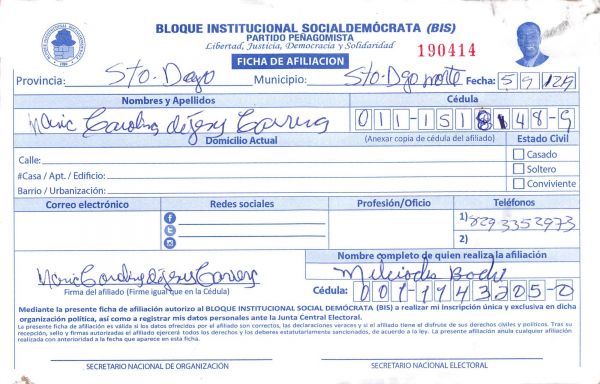 BLOQUE INSTITUCIONAL SOCIALDEMÓCRATA (BIS)
PARTIDO PEÑAGOMISTA
Libertad, Justicia, Democracia y Solidaridad
190414
FICHA DE AFILIACION
Provincia: Sto-Dgo Municipio: Sto-Dgo norte Fecha: 5/9/129
Nombres y Apellidos Cédula
Maria Carolina de Jesus 011-151 148-9
Domicilio Actual (Anexar copia de cédula del afiliado) Estado Civil
Calle: Casado
#Casa / Apt. / Edificio: Soltero
Barrio / Urbanización: Conviviente
Correo electrónico Redes sociales Profesión/Oficio Teléfonos
1) 8293352973
2)
Nombre completo de quien realiza la afiliación
Maria Carolina de Jesus
Firma del afiliado (Firme igual que en la Cédula) Cédula: 001-1743205-0
Mediante la presente ficha de afiliación autorizo al BLOQUE INSTITUCIONAL SOCIAL DEMÓCRATA (BIS) a realizar mi inscripción única y exclusiva en dicha
organización política, así como a registrar mis datos personales ante la Junta Central Electoral.
La presente ficha de afiliación es válida si los datos ofrecidos por el afiliado son correctos, las declaraciones veraces y si el afiliado tiene el disfrute de sus derechos civiles y políticos. Tras su
recepción, sello y firmas autorizadas el afiliado ejercerá todos los derechos y los deberes estatutariamente sancionados, de acuerdo a la ley. La presente afiliación anula cualquier afiliación
realizada con anterioridad a la fecha que aparece en esta ficha.
SECRETARIO NACIONAL DE ORGANIZACIÓN SECRETARIO NACIONAL ELECTORAL